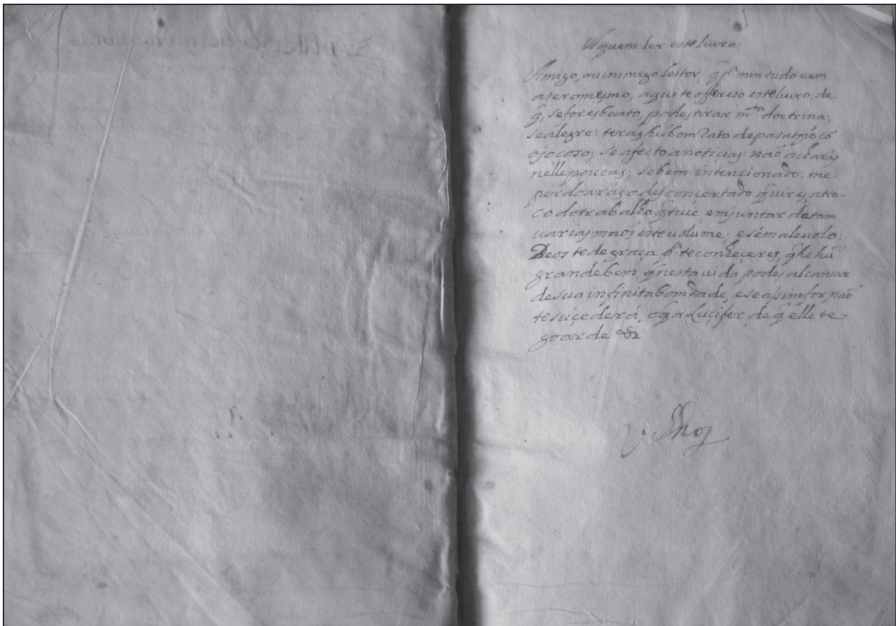 A quem ler este livro
Amigo, ou inimigo leitor q̃ pª mim tudo vem
a ser o mesmo, aqui te offereso este livro, de
q̃, se fores beato, podes tirar m.ta doctrina;
se alegre: teras hũ bom rato de pasatipo có
o jocozo; se afecto a noticias: não acharás
nelle poucas; se bem intencionado: me
perdoarás o desconcertado q̃ vires a tro-
co do trabalho q̃ tive em juntar de tam
varias maõs este vulume; e se malevolo:
Deos te dé graça pª te conheceres, q̃ he hũ
grande bem q̃ nesta vida podes alcansar
de sua infinita bomdade, e se assim for, não
te sucederá, o q̃ a Lucifer, de q̃ elle te
goarde